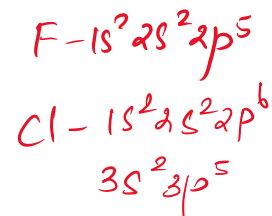 F - 1s² 2s² 2p⁵
Cl - 1s² 2s² 2p⁶
3s² 3p⁵